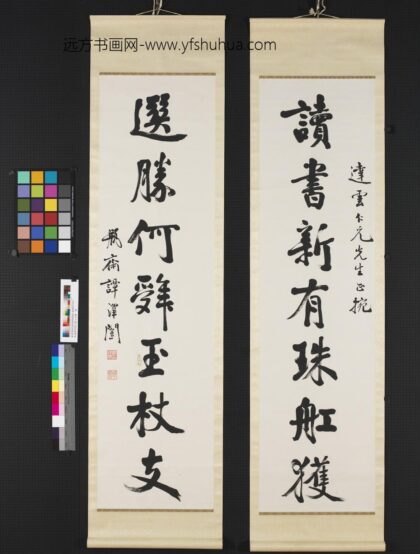 远方书画网-www.yfshuhua.com
達雲仁兄先生正捥
讀書新有珠舡獲
選勝何辤玉杖支
瓶齋譚澤闓